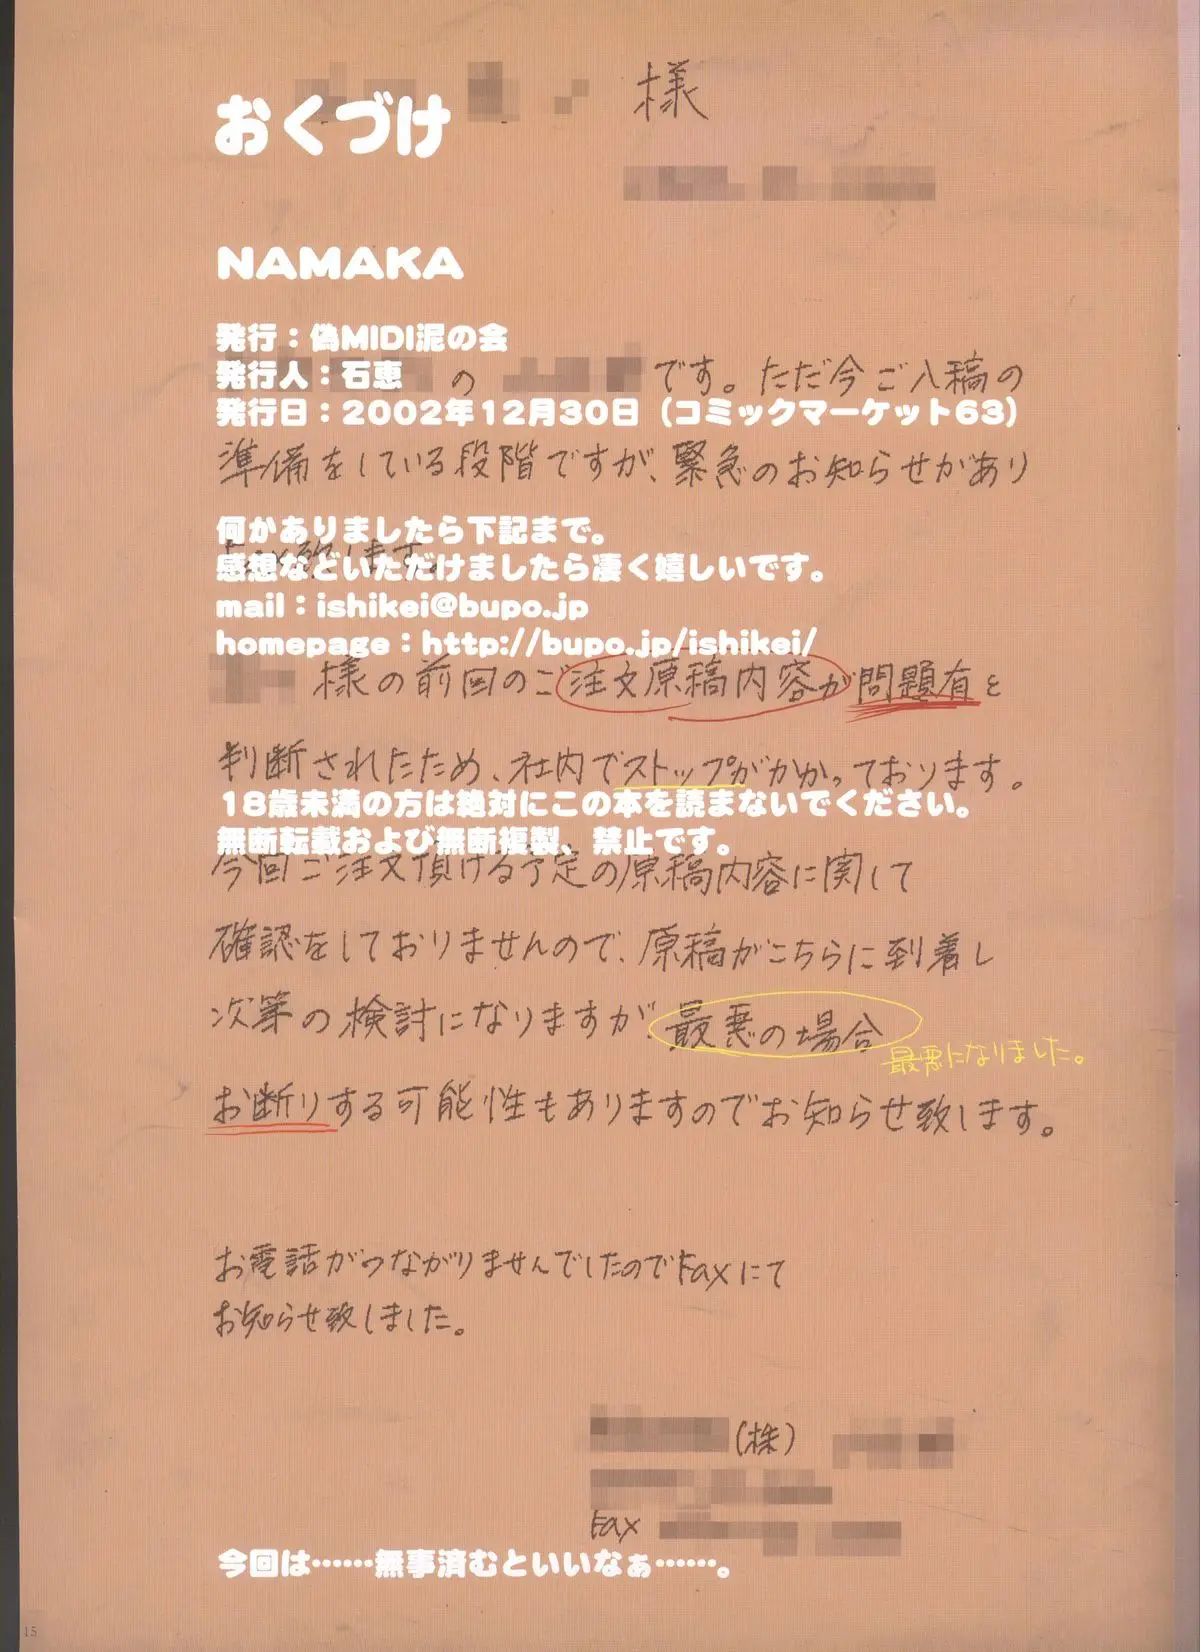 様
おくづけ
NAMAKA
発行：偽MIDI泥の会
発行人：石恵
の です。ただ今ご入稿の
発行日：2002年12月30日（コミックマーケット63）
準備をしている段階ですが、緊急のお知らせがあり
何かありましたら下記まで。
Fax致します。
感想などいただけましたら凄く嬉しいです。
mail：ishikei@bupo.jp
homepage：http://bupo.jp/ishikei/
様の前回のご注文原稿内容が問題有と
判断されたため、社内でストップがかかっております。
18歳未満の方は絶対にこの本を読まないでください。
無断転載および無断複製、禁止です。
今回ご注文頂ける予定の原稿内容に関して
確認をしておりませんので、原稿がこちらに到着し
次第の検討になりますが、最悪の場合
最悪になりました。
お断りする可能性もありますのでお知らせ致します。
お電話がつながりませんでしたのでFaxにて
お知らせ致しました。
(株)
Fax
今回は……無事済むといいなぁ……。
15